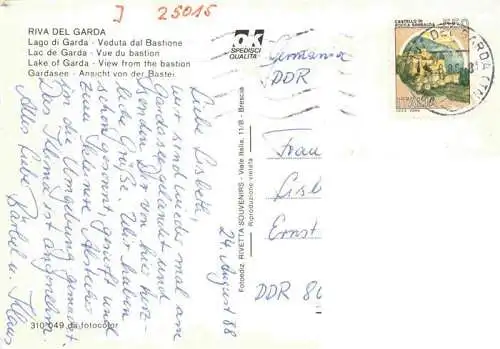 J 25015
RIVA DEL GARDA
Lago di Garda - Veduta dal Bastione
Lac de Garda - Vue du bastion
Lake of Garda - View from the bastion
Gardasee - Ansicht von der Bastei
OK
SPEDISCI
QUALITA'
CASTELLO DI
ROCCA SINIBALDA
550
ITALIA
DEL GARDA (TN)
Germania
DDR
Frau
Lisb
Ernst
DDR 80
24. August 88
Liebe Lisbeth,
wir sind wieder mal am
Gardasee gelandet und
senden Dir von hier herz-
liche Grüße. Wir haben
schon gesonnt, gesurft und
zum kleinere Abstecher
in die Umgebung gemacht.
Das Klima ist angenehm.
Alles Liebe Bärbel u. Klaus
Fotoediz. RIVETTA SOUVENIRS - Viale Italia, 11/B - Brescia
Riproduzione vietata
310 049 ds fotocolor